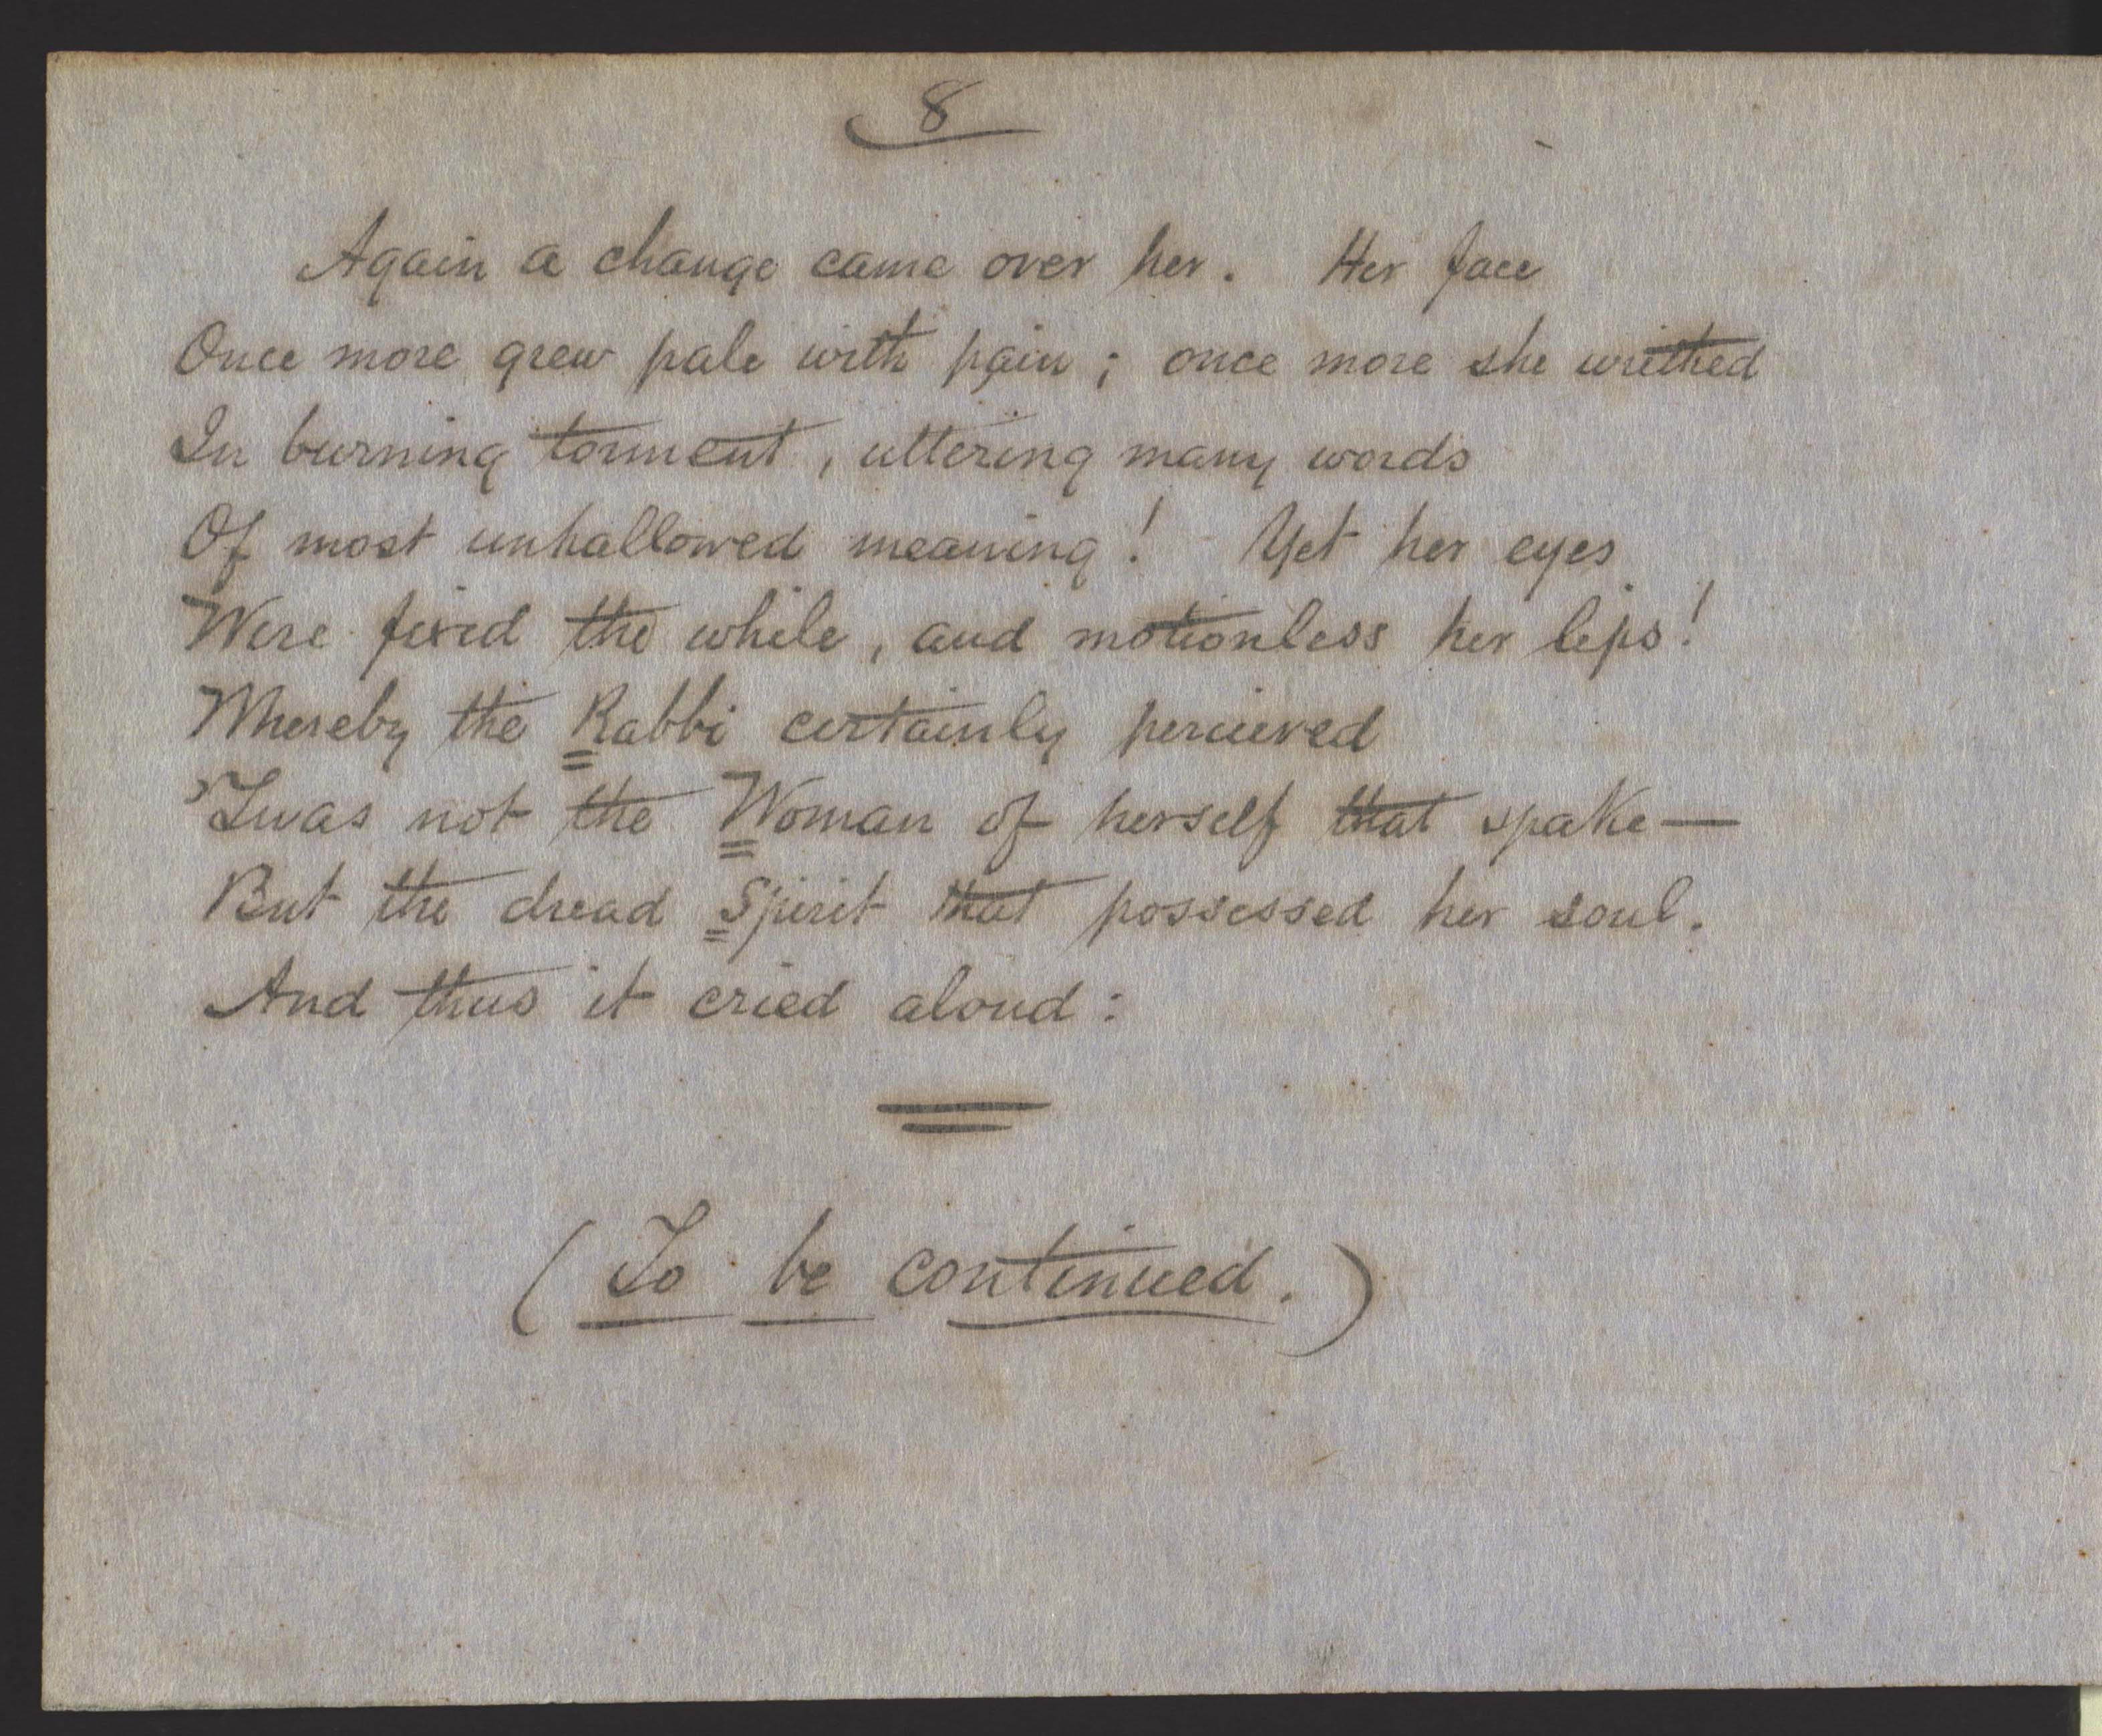 8
Again a change came over her. Her face
Once more grew pale with pain; once more she writhed
In burning torment, uttering many words
Of most unhallowed meaning! Yet her eyes
Were fixed the while, and motionless her lips!
Whereby the Rabbi certainly percieved
'Twas not the Woman of herself that spake—
But the dread Spirit that possessed her soul.
And thus it cried aloud:
(To be continued.)